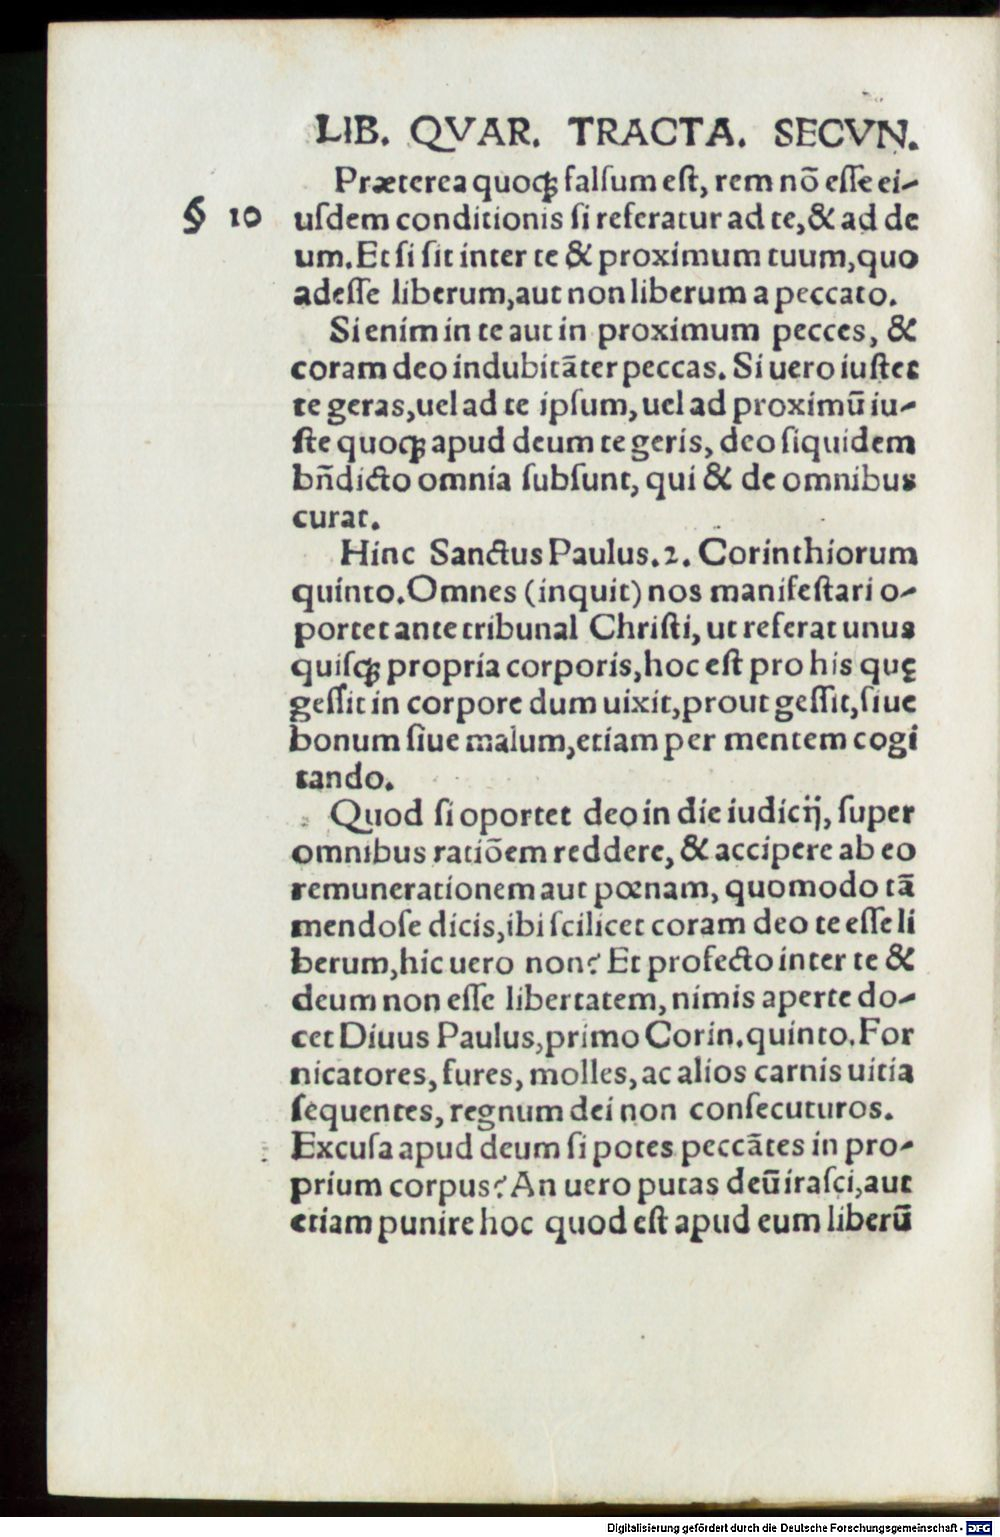 LIB. QVAR. TRACTA. SECVN.
Præterea quoqꝫ falſum eſt, rem nõ eſſe ei-
§ 10 uſdem conditionis ſi referatur ad te, & ad de
um. Et ſi ſit inter te & proximum tuum, quo
adeſſe liberum, aut non liberum a peccato.
Si enim in te aut in proximum pecces, &
coram deo indubitãter peccas. Si uero iuſtet
te geras, uel ad te ipſum, uel ad proximũ iu-
ſte quoqꝫ apud deum te geris, deo ſiquidem
bñdicto omnia ſubſunt, qui & de omnibus
curat.
Hinc Sanctus Paulus. 2. Corinthiorum
quinto. Omnes (inquit) nos manifeſtari o-
portet ante tribunal Chriſti, ut referat unus
quiſqꝫ propria corporis, hoc eſt pro his quę
geſſit in corpore dum uixit, prout geſſit, ſiue
bonum ſiue malum, etiam per mentem cogi
tando.
Quod ſi oportet deo in die iudicij, ſuper
omnibus ratiõem reddere, & accipere ab eo
remunerationem aut pœnam, quomodo tã
mendoſe dicis, ibi ſcilicet coram deo te eſſe li
berum, hic uero non? Et profecto inter te &
deum non eſſe libertatem, nimis aperte do-
cet Diuus Paulus, primo Corin. quinto. For
nicatores, fures, molles, ac alios carnis uitia
ſequentes, regnum dei non conſecuturos.
Excuſa apud deum ſi potes peccãtes in pro-
prium corpus? An uero putas deũ iraſci, aut
etiam punire hoc quod eſt apud eum liberũ
Digitalisierung gefördert durch die Deutsche Forschungsgemeinschaft - DFG